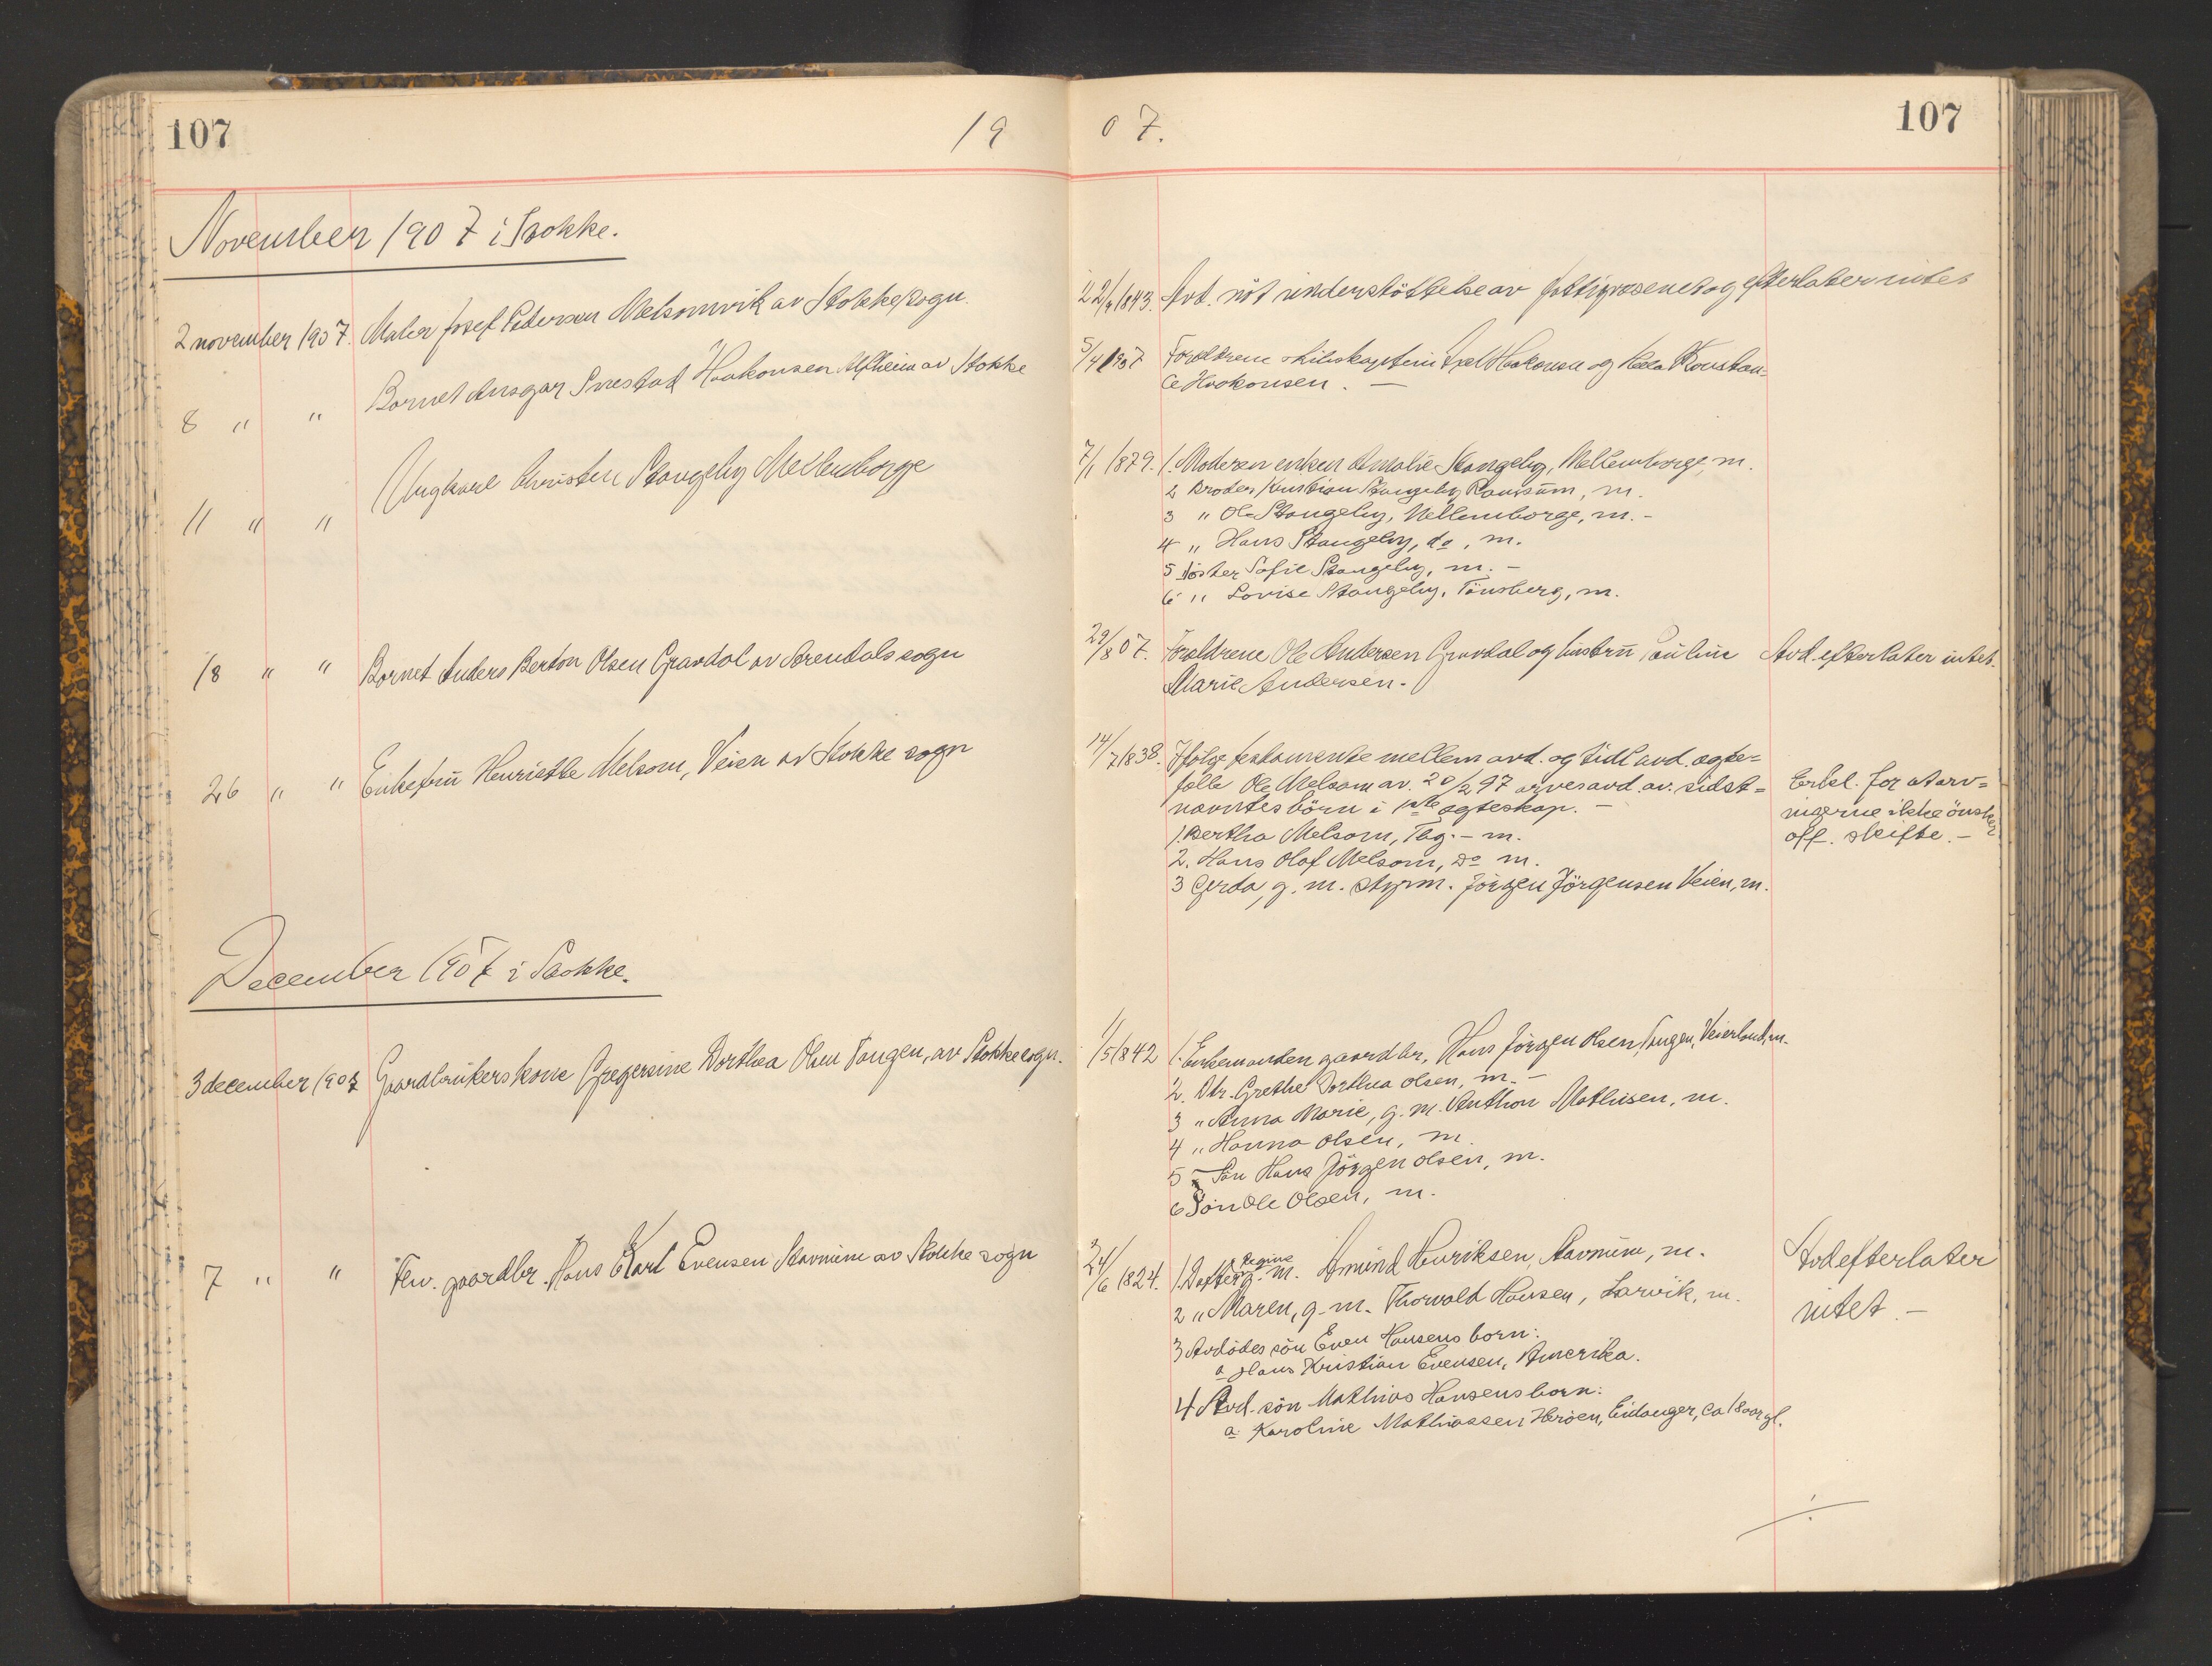 107
19
07.
107
November 1907 i Stokke.
2 november 1907. Maler Josef Pedersen Melsomvik av Stokke sogn.
22/4 1843. Avd. nöt understöttelse av fattigvæsenet og efterlater intet
8 " " Barnet Ansgar Snestad Haakonsen Alfheim av Stokke
5/4 1907 Forældrene skibskaptein Axel Haakonsen og Konstan=
ce Haakonsen. —
11 " " Ungkarl Christen Stangeby Mellemborge
7/1 1879. 1. Moderen enken Amalie Stangeby, Mellemborge, m.
2 Broder Kristian Stangeby Ramsum, m.
3 " Ole Stangeby, Mellemborge, m. -
4 " Hans Stangeby, do, m.
5 Söster Sofie Stangeby, m. -
6 " Lovise Stangeby, Tönsberg, m.
18 " " Barnet Anders Berton Olsen Gravdal av Arendals sogn
29/8 07. Forældrene Ole Andersen Gravdal og hustru Pauline
Marie Andersen.
Avd. efterlater intet.
26 " " Enkefru Henriette Melsom, Veien av Stokke sogn
14/7 1838. Ifölge testamente mellem avd. og tidl. avd. ægte=
fælle Ole Melsom av 20/2 97 arves avd. av sidst=
nævntes börn i 1ste ægteskap. —
1. Bertha Melsom, Tbg. - m.
2. Hans Olaf Melsom, do m.
3 Gerda, g. m. styrm. Jörgen Jörgensen Veien, m.
Erkl. for at arv=
ingerne ikke önsker
off. skifte. -
December 1907 i Stokke.
3 december 1907 Gaardbrukerskone Gregersine Dorthea Olsen Tangen, av Stokke sogn.
1/5 1842 1. Enkemanden gaardbr. Hans Jörgen Olsen, Tangen, Veierland, m.
2. Dtr. Grethe Dorthea Olsen, m. -
3 " Anna Marie, g. m. Anthon Mathisen, m.
4 " Hanna Olsen, m.
5 - Sön Hans Jörgen Olsen, m.
6 Sön Ole Olsen, m.
7 " " Flv. gaardbr. Hans Karl Evensen Stavnum av Stokke sogn
24/6 1824. 1. Datter Regine g. m. Amund Henriksen, Stavnum, m.
2 " Maren, g. m. Thorvald Hansen, Larvik, m.
3 Avdödes sön Even Hansens barn:
a Hans Kristian Evensen, Amerika.
4 Avd. sön Mathias Hansens barn:
a. Karoline Mathiassen Heröen, Eidanger, ca 18 aar gl.
Avd efterlater
intet. -